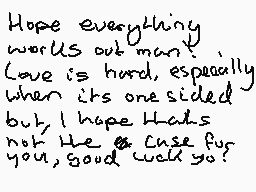 Hope everything
works out man!
Love is hard, especially
when its one sided
but, I hope thats
not the case for
you, good luck yo!